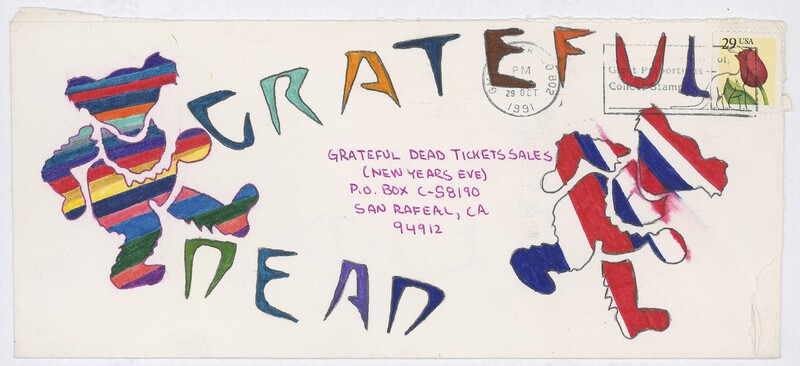 GRATEFUL
DEAD
GRATEFUL DEAD TICKETS SALES
(NEW YEARS EVE)
P.O. BOX C-S8190
SAN RAFEAL, CA
94912
PM
29 OCT
1991
802
Collect Stamps
29 USA